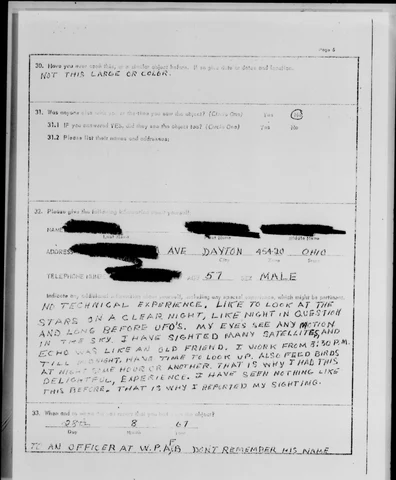 Page 5
30. Have you ever seen this, or a similar object before. If so give date or dates and location.
NOT THIS LARGE OR COLOR.
31. Was anyone else with you at the time you saw the object? (Circle One) Yes No
31.1 IF you answered YES, did they see the object too? (Circle One) Yes No
31.2 Please list their names and addresses:
32. Please give the following information about yourself:
NAME
Last Name First Name Middle Name
ADDRESS AVE DAYTON 45420 OHIO
Street City Zone State
TELEPHONE NUMBER AGE 57 SEX MALE
Indicate any additional information about yourself, including any special experience, which might be pertinent.
NO TECHNICAL EXPERIENCE. LIKE TO LOOK AT THE
STARS ON A CLEAR NIGHT, LIKE NIGHT IN QUESTION
AND LONG BEFORE UFO'S. MY EYES SEE ANY MOTION
IN THE SKY. I HAVE SIGHTED MANY SATELLITES, AND
ECHO WAS LIKE AN OLD FRIEND. I WORK FROM 3:30 P.M.
TILL MIDNIGHT. HAVE TIME TO LOOK UP. ALSO FEED BIRDS
AT NIGHT SOME HOUR OR ANOTHER. THAT IS WHY I HAD THIS
DELIGHTFUL, EXPERIENCE. I HAVE SEEN NOTHING LIKE
THIS BEFORE. THAT IS WHY I REPORTED MY SIGHTING.
33. When and to whom did you report that you had seen the object?
8 67
Day Month Year
TO AN OFFICER AT W.P.A.F.B DONT REMEMBER HIS NAME